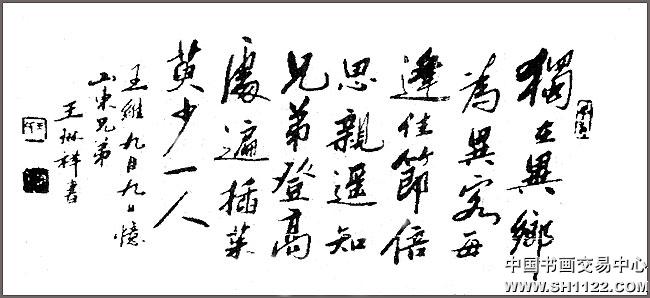 獨在異鄉
為異客每
逢佳節倍
思親遥知
兄弟登高
處遍插茱
萸少一人
王維九月九日憶
山東兄弟
王琳祥書
中国书画交易中心
WWW.SH1122.COM